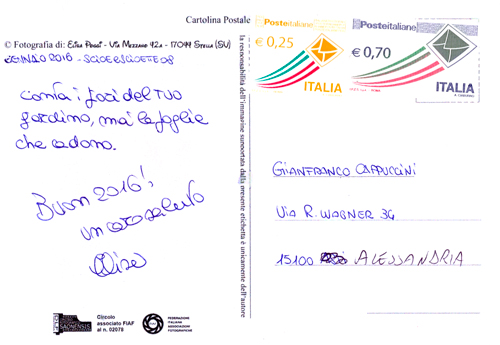 Cartolina Postale
© Fotografia di: Elisa Poggi - Via Mezzano 92A - 17044 Stella (SV)
GENNAIO 2016 -
Conta i fiori del TUO
giardino, mai le foglie
che cadono.
Buon 2016!
un caro saluto
Elisa
Circolo
associato FIAF
al n. 02078
FEDERAZIONE
ITALIANA
ASSOCIAZIONI
FOTOGRAFICHE
la responsabilità dell'immagine supportata dalla presente etichetta è unicamente dell'autore
Posteitaliane
€ 0,25
ITALIA
Posteitaliane
€ 0,70
ITALIA
GIANFRANCO CAPPUCCINI
VIA R. WAGNER 34
15100 ALESSANDRIA